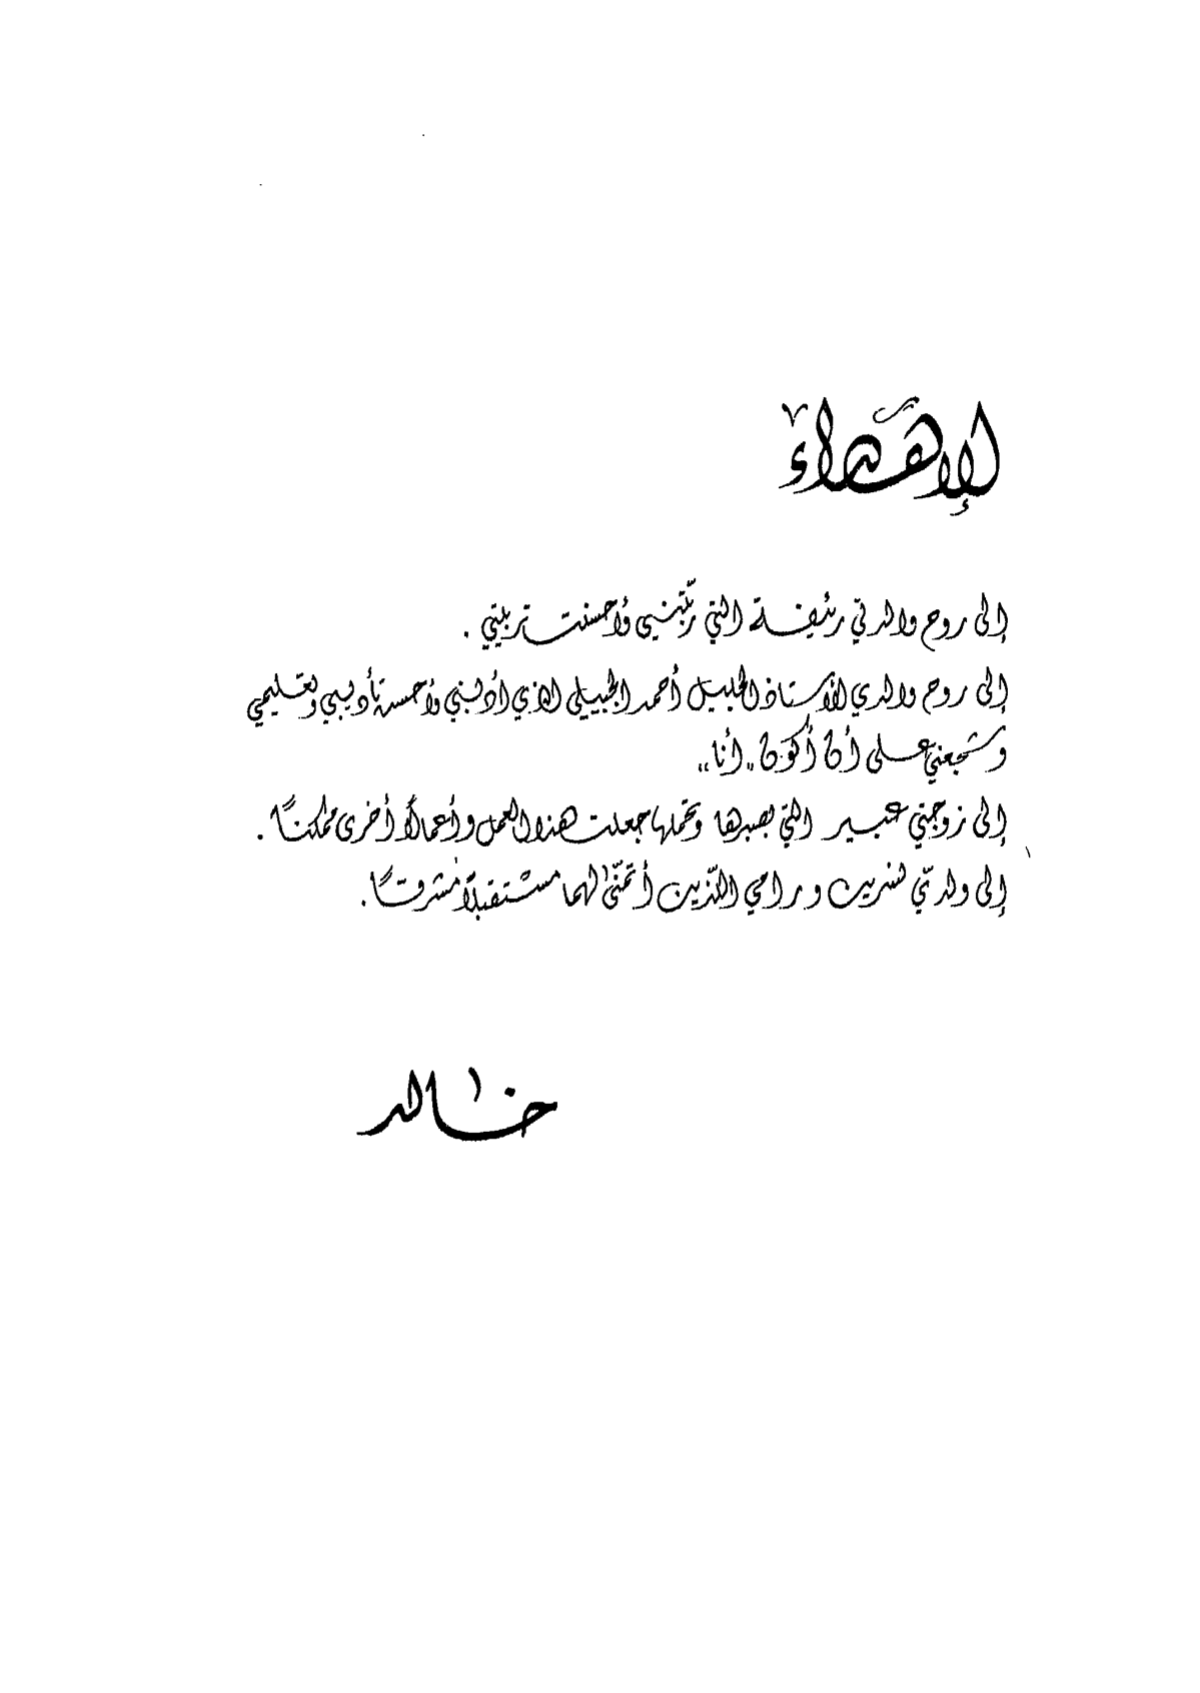 الإهداء
إلى روح والدتي رئيفة التي ربّتني وأحسنت تربيتي .
إلى روح والدي الأستاذ الجليل أحمد الجبيلي الذي أدّبني وأحسن تأديبي وتعليمي
وشجعني على أن أكون "أنا"
إلى زوجتي عبير التي بصبرها وتحملها جعلت هذا العمل وأعمالاً أخرى ممكناً .
إلى ولديّ نسرين ورامي اللّذين أتمنّى لهما مستقبلاً مشرقاً .
خالد